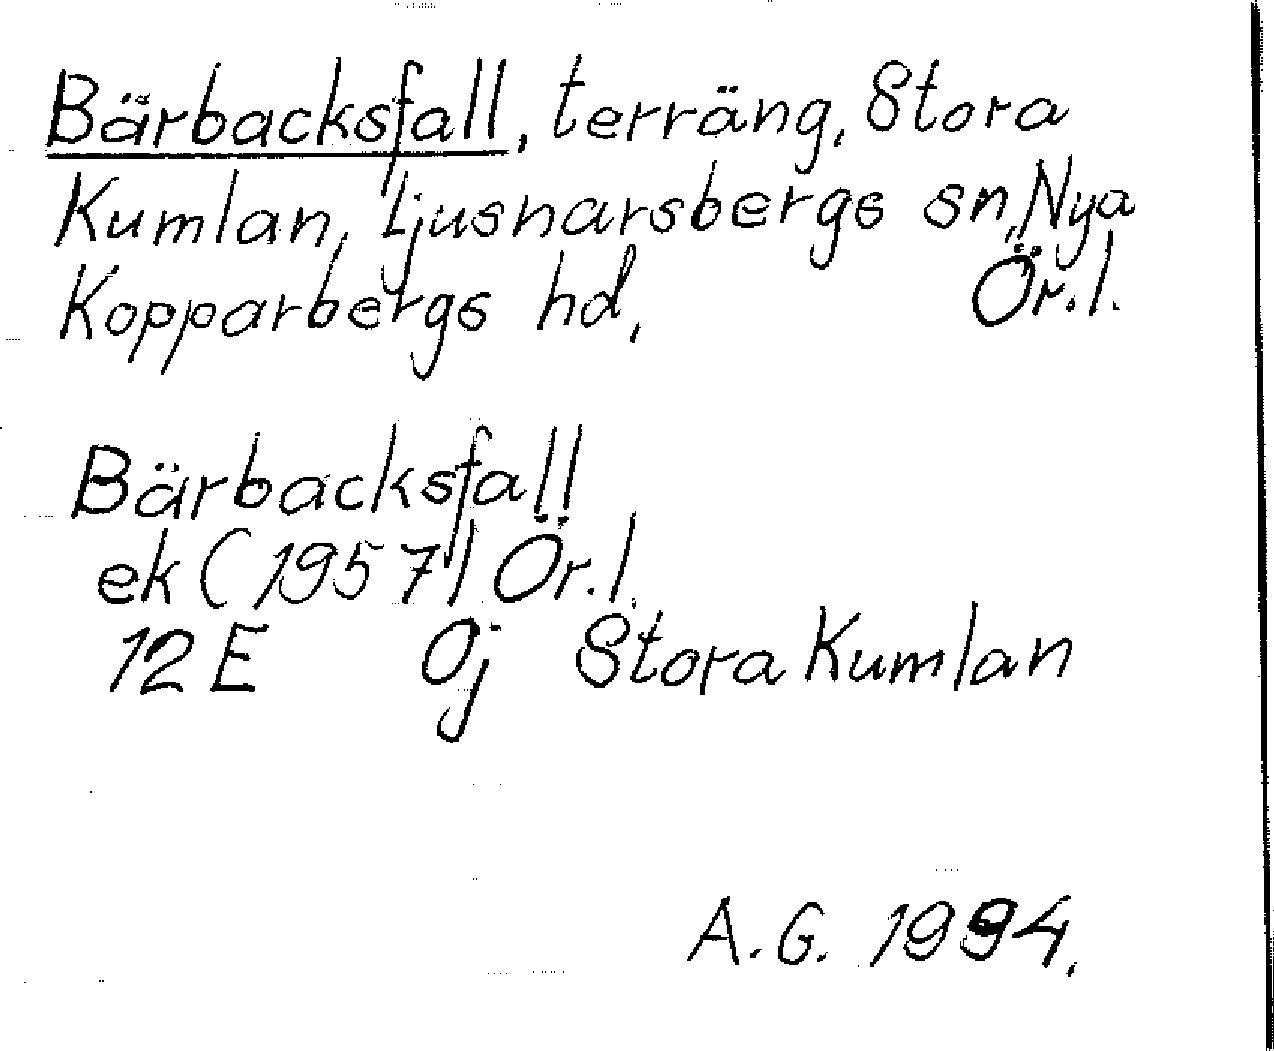 Bärbacksfall, terräng, Stora
Kumlan, Ljusnarsbergs sn, Nya
Kopparbergs hd, Ör.l.
Bärbacksfall
ek (1957) Ör.l.
12 E 0j Stora Kumlan
A.G. 1994.